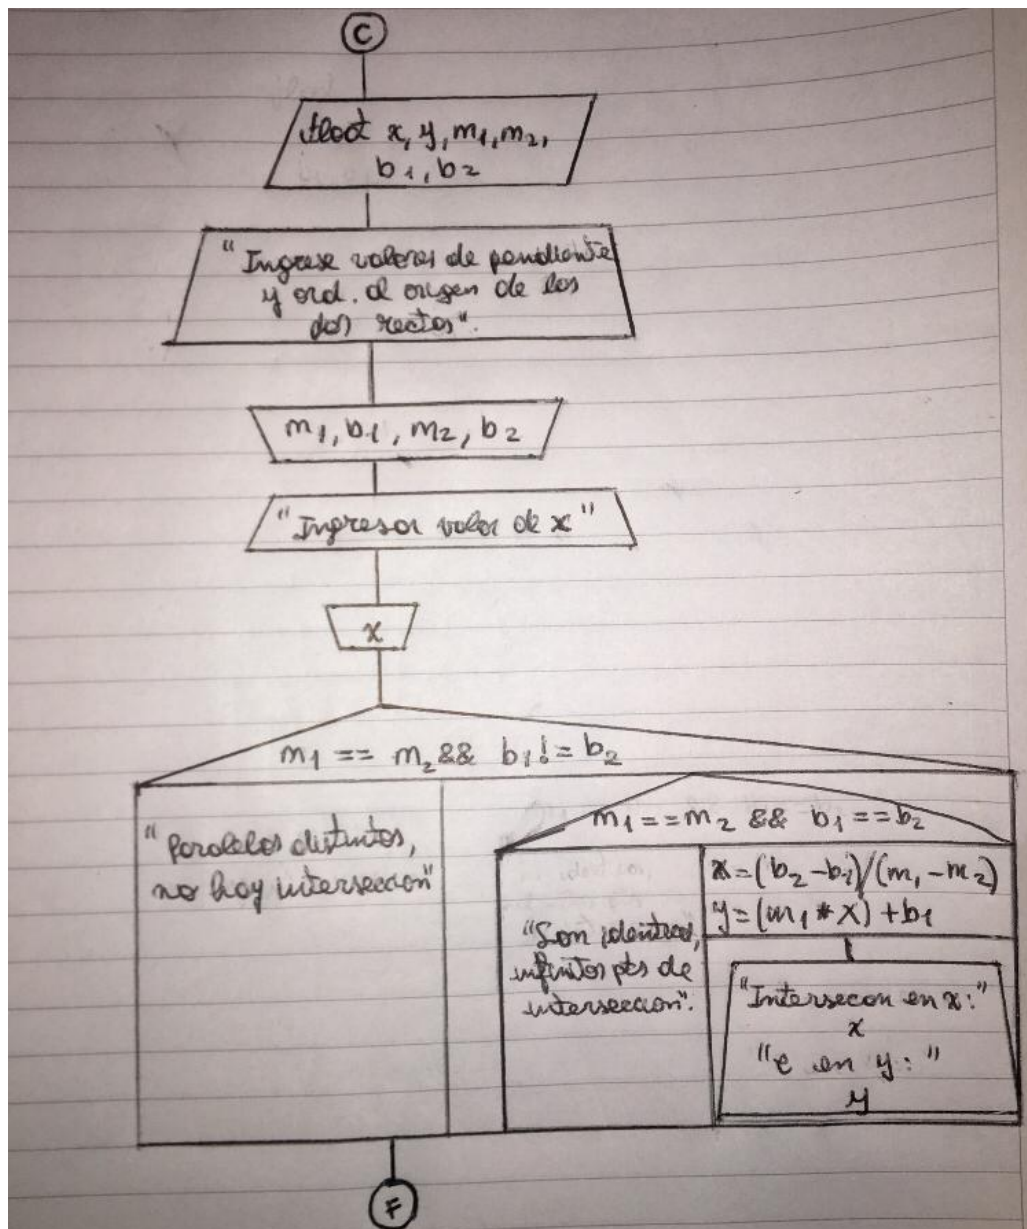 C
float x, y, m1, m2,
b1, b2
"Ingrese valores de pendiente
y ord. al origen de las
dos rectas".
m1, b1, m2, b2
"Ingresar valor de x"
x
m1 == m2 && b1 != b2
"Paralelas distintas,
no hay interseccion"
m1 == m2 && b1 == b2
"Son identicas,
infinitos pts de
interseccion".
x = (b2 - b1)/(m1 - m2)
y = (m1 * x) + b1
"Intersecon en x:"
x
"e en y: "
y
F